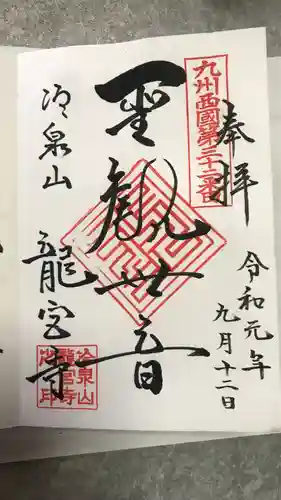 奉拝
九州西國第三十二番
令和元年
九月十二日
聖観世音
冷泉山
龍宮寺
冷泉山
龍宮寺